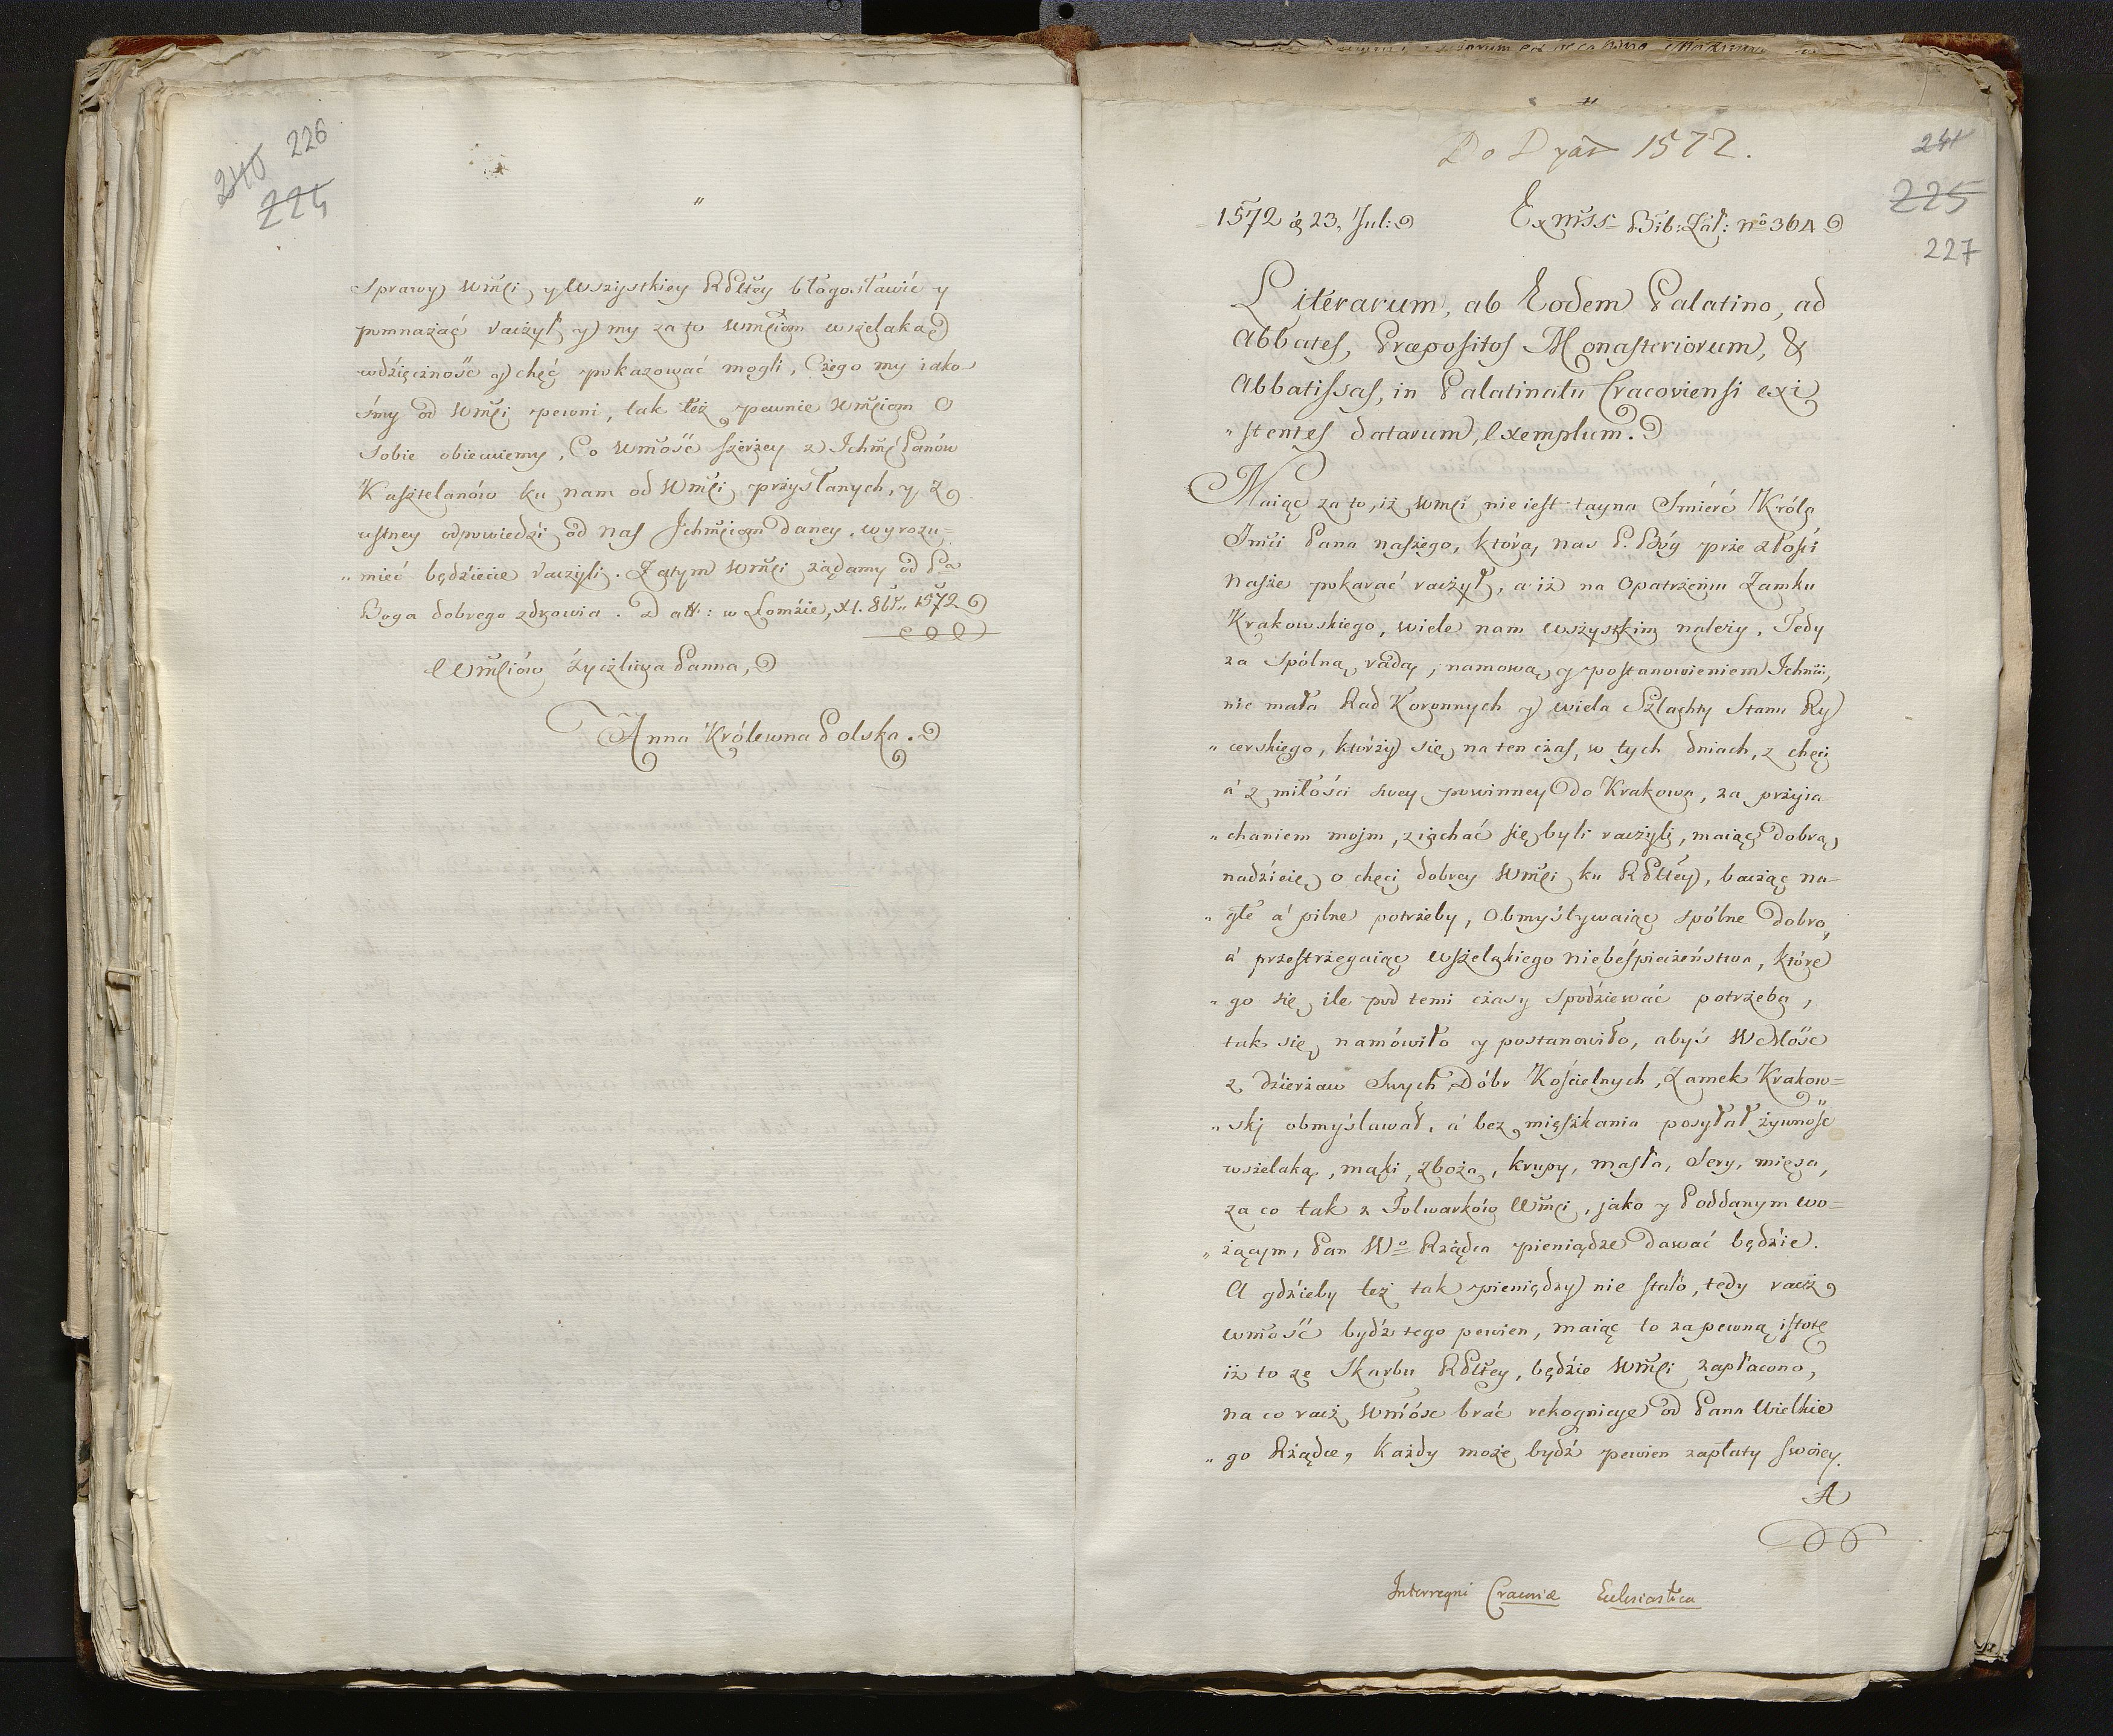 226
240
224
"
Sprawy Wmći, y Wszystkiey RPltey błogosławić y
pomnażać raczył, y my za to Wmćiom wszelaką
wdzięczność y chęć pokazować mogli, Czego my iako
śmy od Wmći pewni, tak też pewnie Wmćiom o
Sobie obiecuiemy, Co Wmość szerzey z Ichmć Panów
Kasztelanów ku nam od Wmći przysłanych, y z
ustney odpowiedzi od nas Jchmćiom daney, wyrozu=
„mieć będziecie raczyli. Zatym Wmći żądamy od Pa
Boga dobrego zdrowia. Datt: w Łomżie, XI. 8br. 1572.
Wmćiów życzliwa Panna,
Anna Królewna Polska.
Do D 1572.
241
225
227
1572 d 23, Jul:
Ex Mss Bib: Zał: No 364
Literarum, ab Eodem Palatino, ad
Abbates, Præpositos Monasteriorum, &
Abbatissas, in Palatinatu Cracoviensi exi
„stentes datarum, exemplum.
Maiąc za to, iż Wmći nie iest tayna Śmierć Króla
Jmći Pana naszego, którą nas P. Bóg prze złości
Nasze pokarać raczył, a iż na Opatrzeniu Zamku
Krakowskiego, wiele nam wszystkim należy, Tedy
za Spólną radą, namową y postanowieniem Ichmći,
nie mała Rad Koronnych y wiela Szlachty Stanu Ry
„cerskiego, którzy się na ten czas, w tych dniach, z chęci
á z miłości swey powinney do Krakowa, za przyia
„chaniem moim, ziąchać się byli raczyli, maiąc dobrą
nadzieię o chęci dobrey Wmći ku RPltey, bacząc na=
„głe á pilne potrzeby, Obmyślywaiąc spólne dobro,
á przestrzegaiąc wszelakiego niebeśpieczeństwa, które
„go się ile pod temi czasy spodziewać potrzeba,
tak się namówiło y postanowiło, abyś WMość
z dzierżaw Swych Dóbr Kościelnych, Zamek Krakow=
„skj obmyślawał, á bez mięszkania posyłał żywność
wszelaką, mąki, zboża, krupy, masła, Sery, mięsa,
za co tak z Folwarków Wmći, jako y Poddanym wo=
„żącym, Pan Wo Rządca pieniądze dawać będzie.
A gdzieby też tak pieniędzy nie stało, tedy racz
wmość bydź tego pewien, maiąc to za pewną istotę
iż to ze Skarbu RPltey, będzie Wmći zapłacono,
na co racz Wmość brać rekognicye od Pana Wielkie
„go Rządce, Każdy może bydź pewien zapłaty swoiey.
A
Interregni Cracoviæ Ecclesiastica